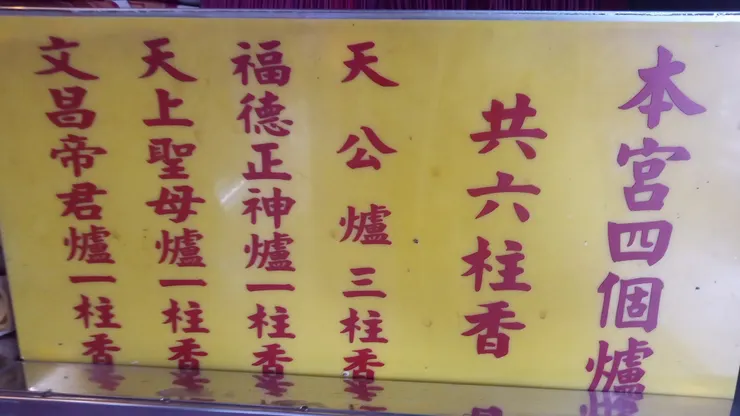 本宮四個爐
共六柱香
天公爐三柱香
福德正神爐一柱香
天上聖母爐一柱香
文昌帝君爐一柱香